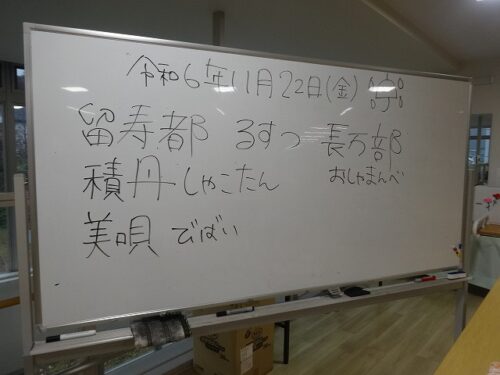 令和6年11月22日(金)
留寿都 るすつ 長万部
積丹 しゃこたん おしゃまんべ
美唄 びばい